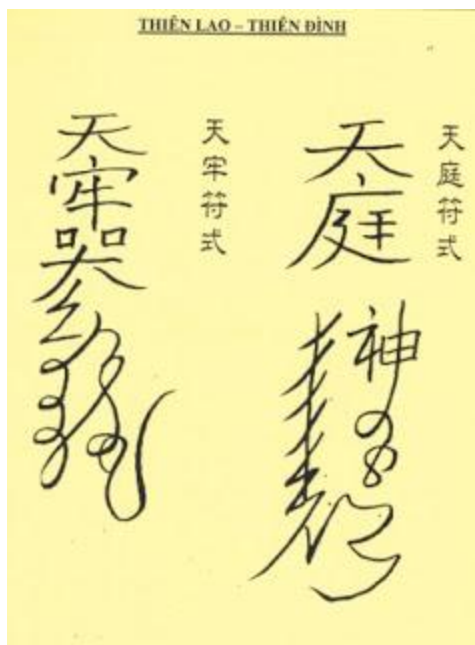 THIÊN LAO – THIÊN ĐÌNH
天庭符式
天庭
神
天牢符式
天牢